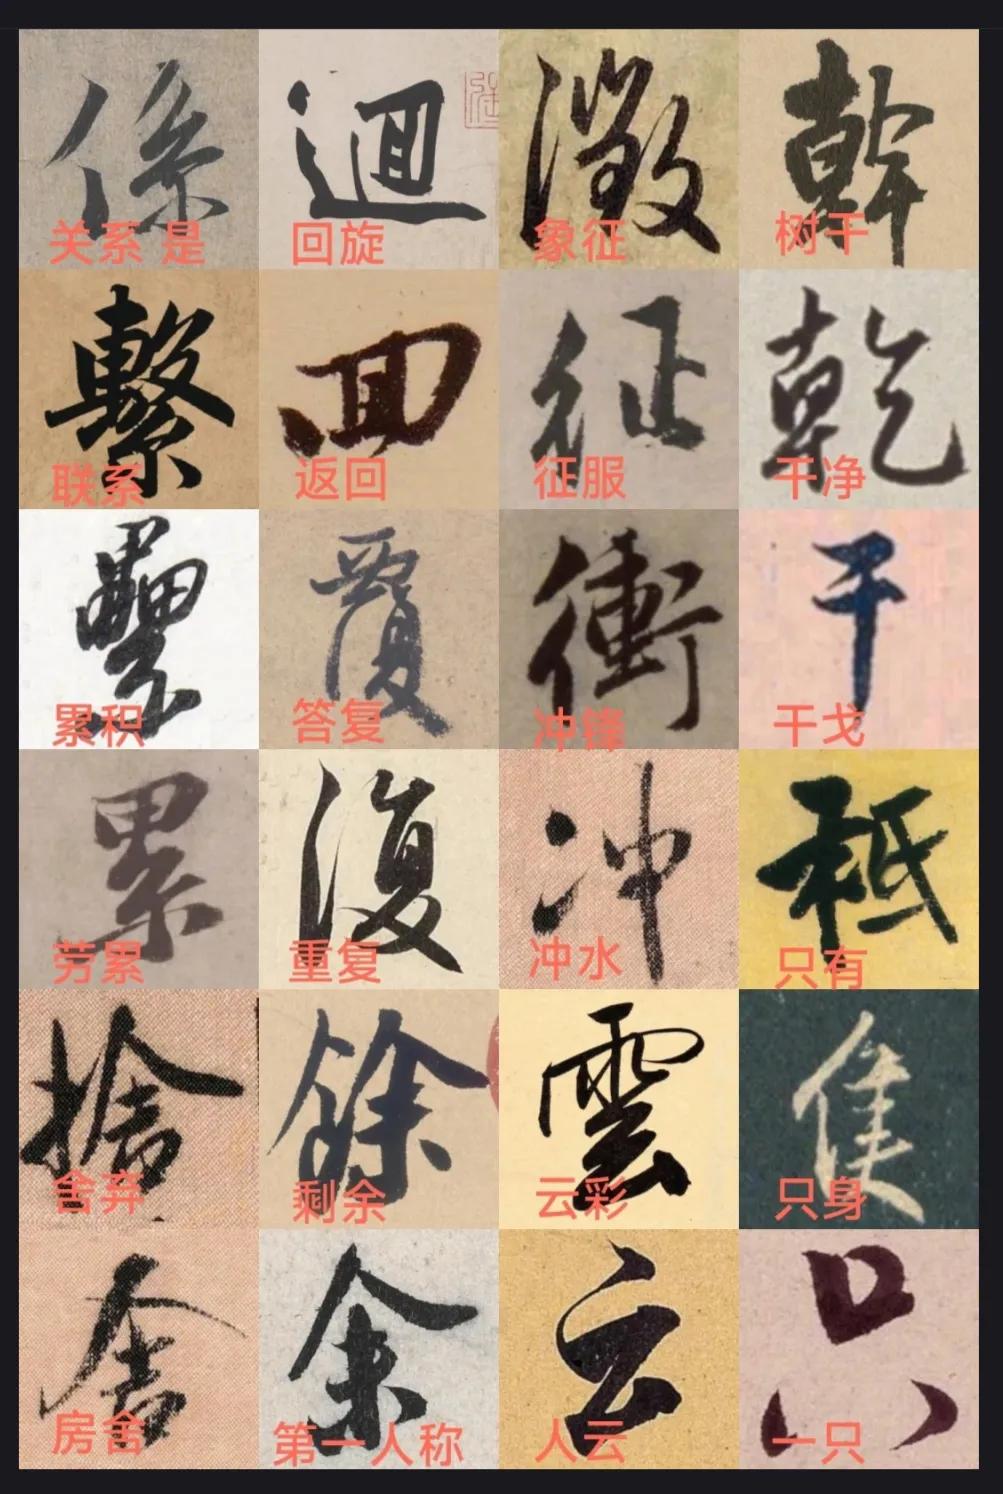 係 迴 徵 幹
关系 是 回旋 象征 树干
繫 回 征 乾
联系 返回 征服 干净
纍 覆 衝 干
累积 答复 冲锋 干戈
累 復 冲 祗
劳累 重复 冲水 只有
捨 餘 雲 隻
舍弃 剩余 云彩 只身
舍 余 云 只
房舍 第一人称 人云 一只